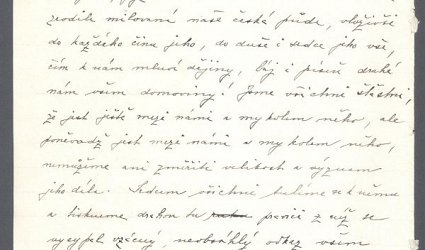 zrodila milovaná naše česká půda, vloživši
do každého činu jeho, do duše i srdce jeho vše,
čím k nám mluví dějiny, báj i píseň drahé
nám všem domoviny! Jsme všichni šťastni,
že jest ještě mezi námi a my kolem něho, ale
poněvadž jest mezi námi a my kolem něho,
nemůžeme ani změřiti velikost a význam
jeho díla. Sedum všichni tulíme se k němu
a tiskneme drahou tu pravici z níž se
vysypal vzácný, neobsáhlý odkaz všem